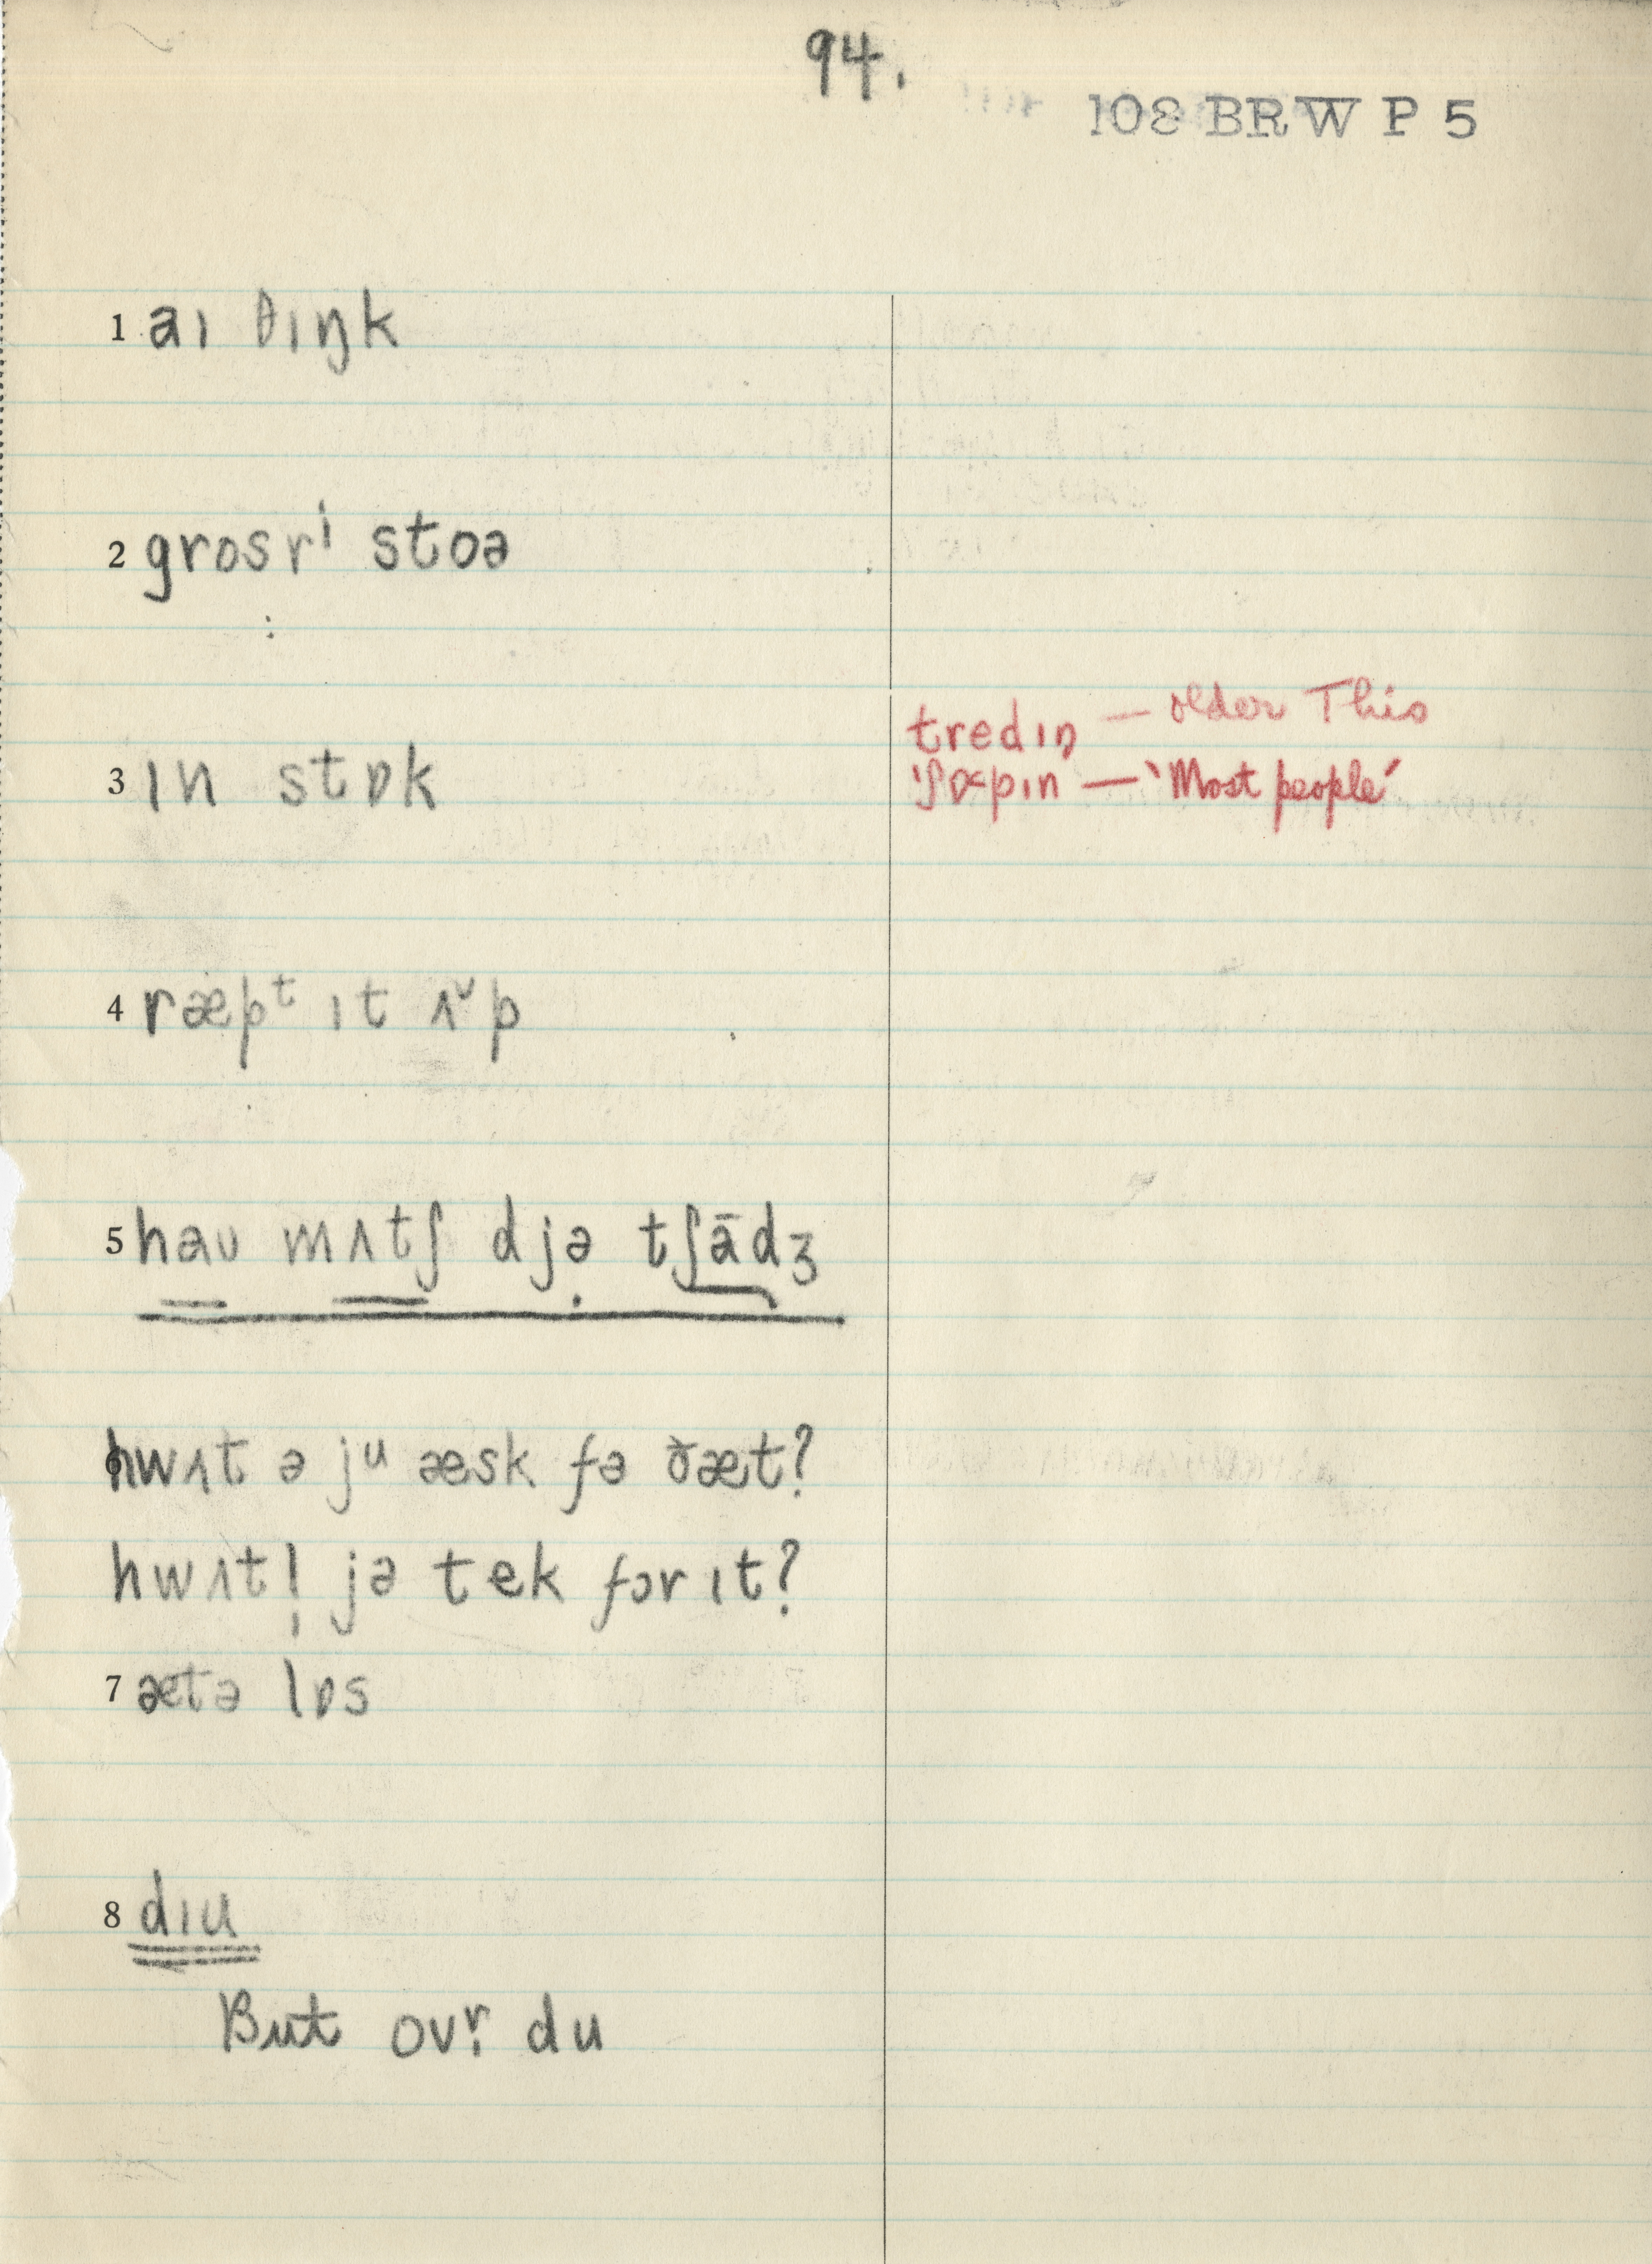 94.
108 BRW P 5
1 aɪ θɪŋk
2 grosrⁱ stoə
tredɪŋ — older This
3 ɪn stɒk
'ʃɒpɪn — 'Most people'
4 ræpᵗ ɪt ʌ˅p
5 haʊ mʌtʃ djə tʃādʒ
hwʌt ə jᵘ æsk fə ðæt?
hwʌt! jə tek fər ɪt?
7 ætə lɒs
8 dɪu
But ovr̩ du